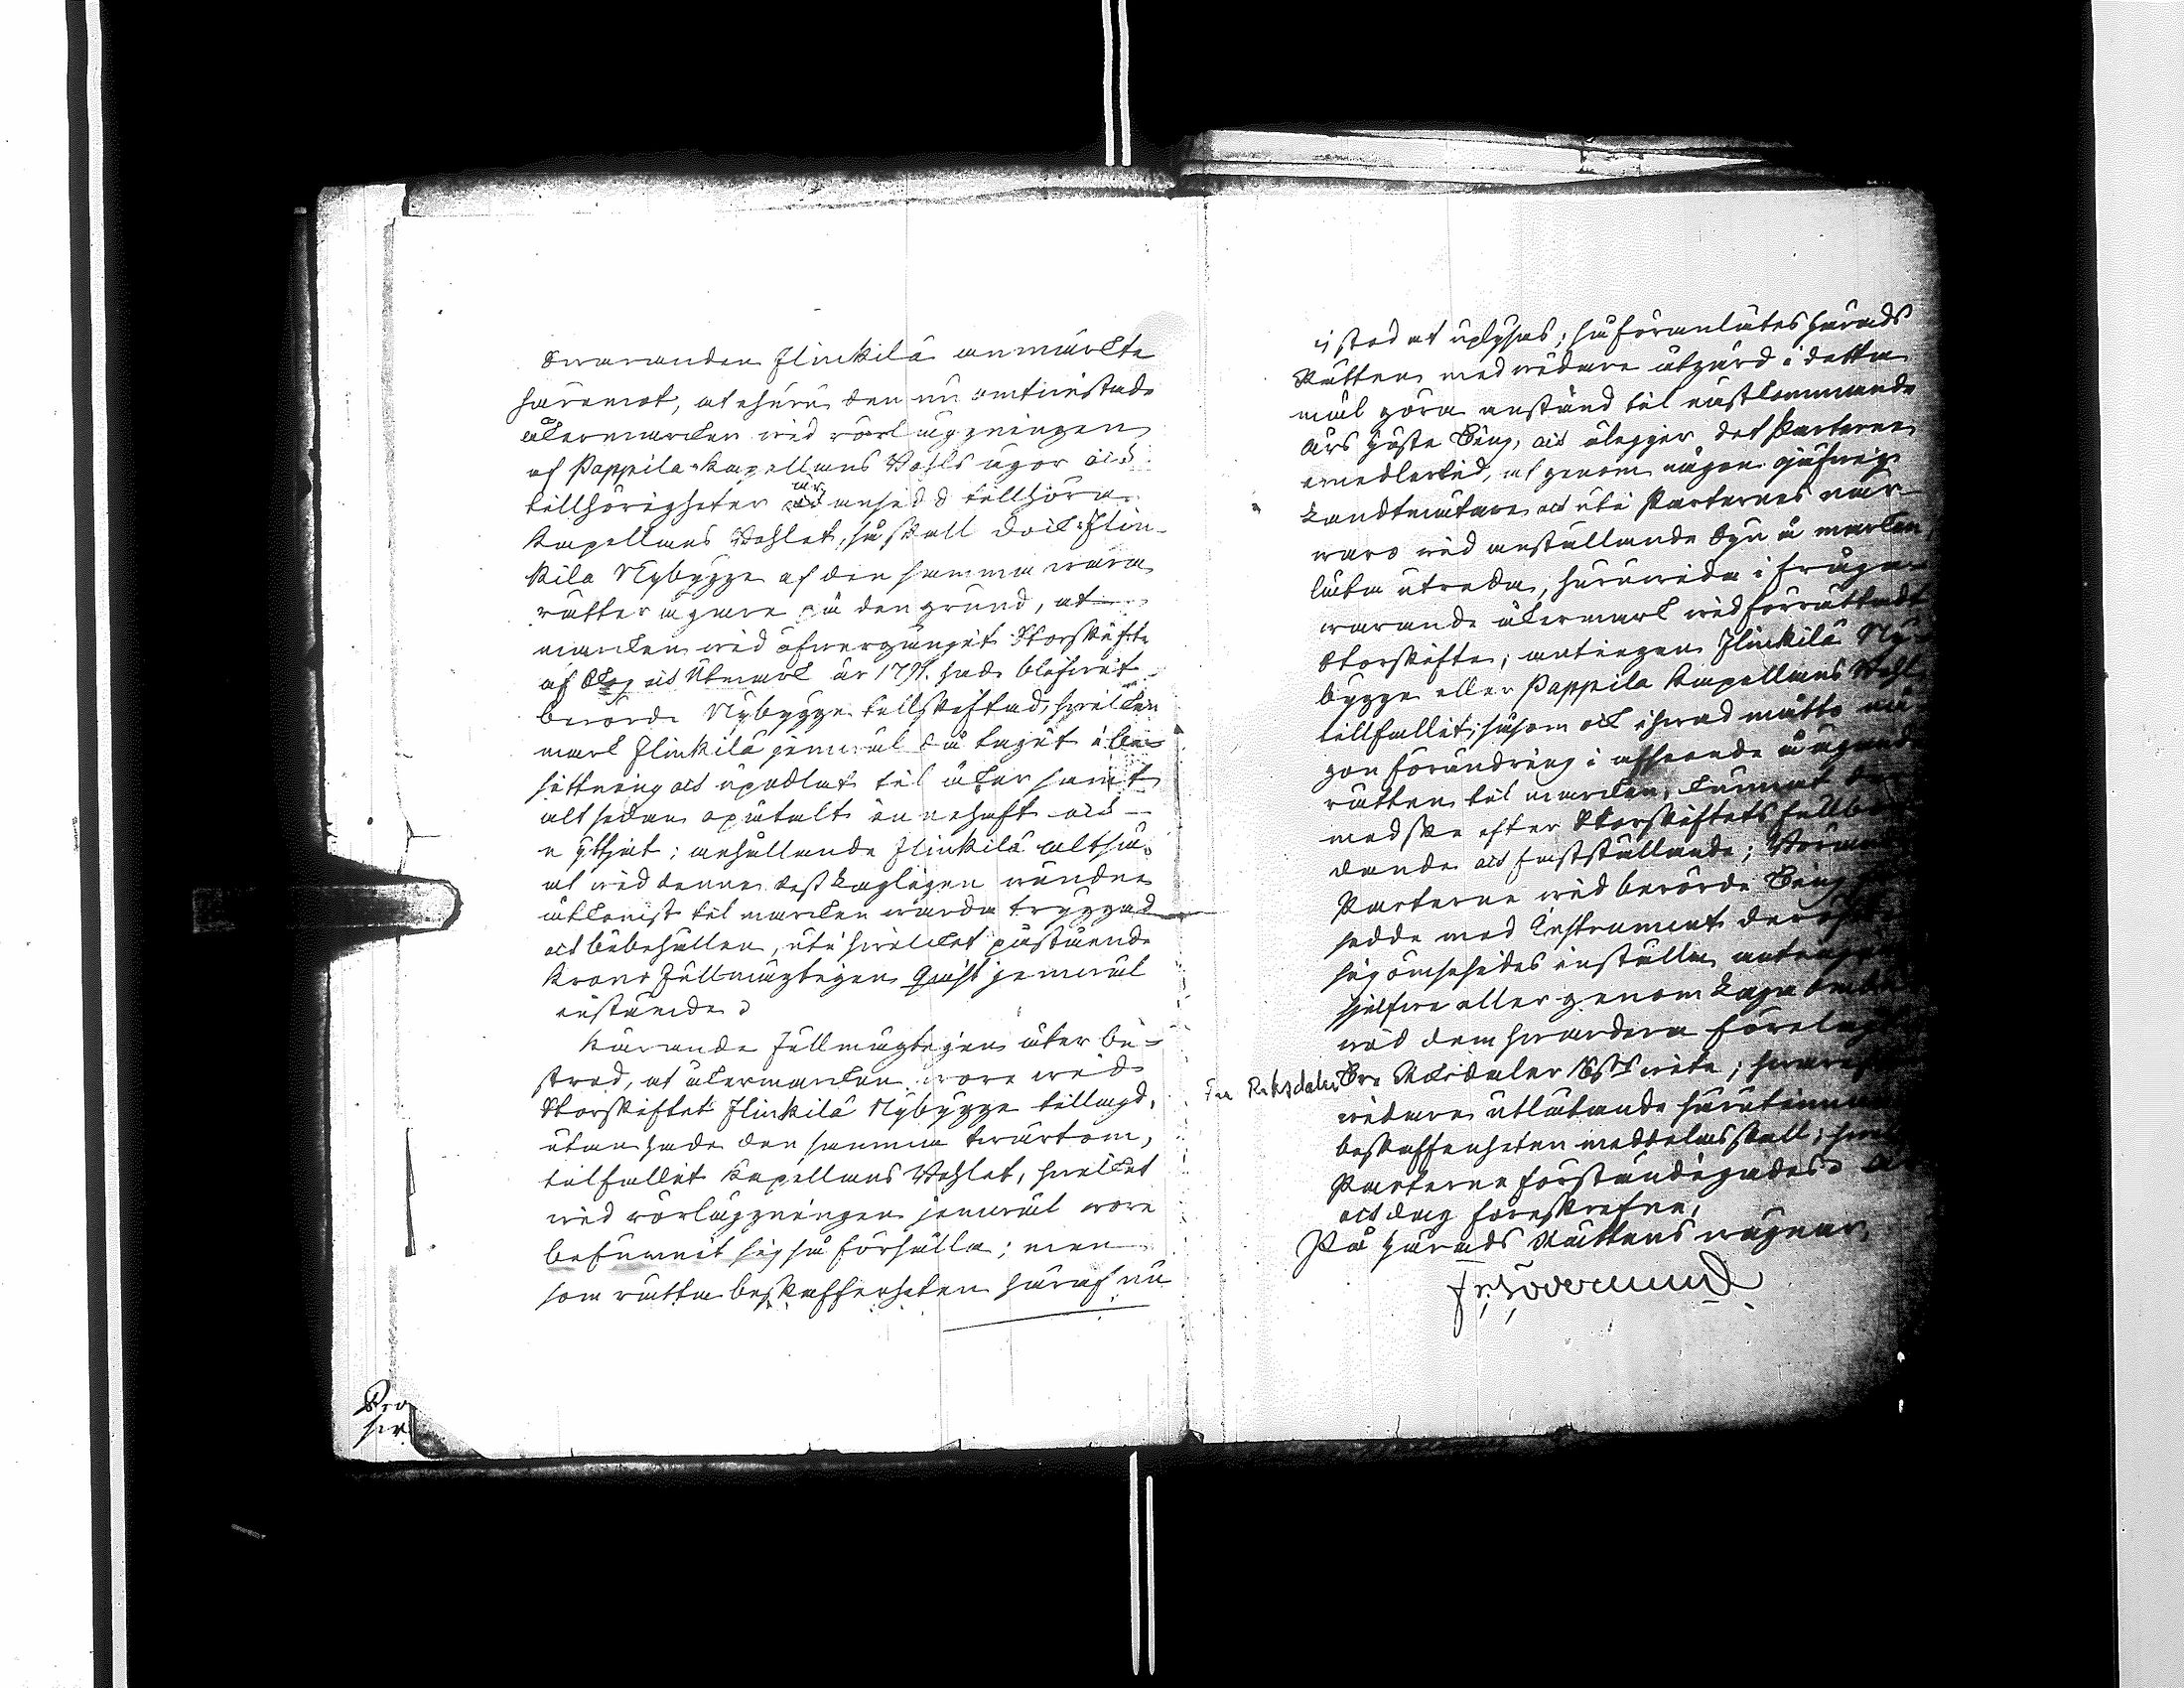 Swaranden Flinkilä anmärkte
häremot, at ehuru den nu omtwistade
åkermarcken wid rörläggningen
af Pappila Kapellans Bohls ägor och
tillhörigheter är ansedd tillhöra
Kapellans Bohlet, så skall dock Flin-
kila Nybygge af den samma wara
rätter ägare på den grund, at
marcken wid öfwergånget Storskifte
af Skog och Utmark år 179. hade blifwit
berörde Nybygge tillskiftad, hwilken
mark Flinkilä jemwäl då tagit i be-
sittning och upodlat til åker samt
alt sedan opåtalt innehaft och
nyttjat; anhållande Flinkilä altså
at wid denne dess Lagligen wundne
åtkomst til marcken warda tryggad
och bibehållen, uti hwilcket påstående
Krono Fullmägtigen Qvist jemwäl
instämde.
Kärande Fullmägtigen åter be-
stred, at åkermarcken wore wid
Storskiftet Flinkilä Nybygge tillagd,
utan hade den samma twärtom,
tilfallit Kapellans Bohlet, hwilcket
wid rörläggningen jemwäl wore
befunnit sig så förhålla; men
som rätta beskaffenheten häraf nu
ej stod at uplysas; så föranlätes Härads
Rätten med widare åtgärd i detta
mål göra anstånd til nästkommande
års Höste Ting, och ålegger det Parterne
emedlertid, at genom någon ojäfwig
Landtmätare och uti Parternes när-
waro wid anställande Syn å marken
låta utreda, huruwida i fråga
warande åkermark wid förrättadt
Storskifte, antingen Flinkilä Ny-
bygge eller Pappila Kapellans Bohl
tillfallit, såsom ock i hwad måtto nå-
gon förändring i afseende å ägande
rätten til marcken, kunnat der-
med ske efter Storskiftets fullbor-
dande och fastställande; Börande
Parterne wid berörde Ting
sedde med Instrument deröfwer
sig ömsesides inställa antingen
sjelfwe eller genom Laga ombud
wid dem hwardera förelagt
Tre Riksdaler Tre Rikdaler 16 s wite; hwarefter
widare utlåtande häruti
beskaffenheten meddelas skall; hwilket
Parterne förständigades.
och dag föreskrefne,
På Härads Rättens wägnar,